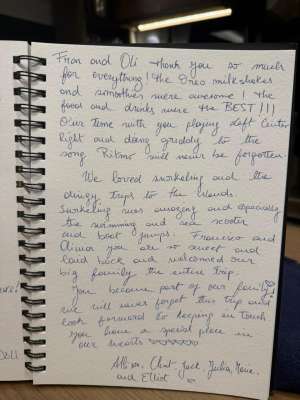 Fran and Oli thank you so much
for everything! the Oreo milkshakes
and smoothies were awesome! the
food and drinks were the BEST!!!
Our time with you playing Left Center
Right and doing griddy to the
song Ritmo will never be forgotten.
We loved snorkeling and the
dingy trips to the islands.
Snorkeling was amazing and especially
the swimming and sea scooter
and boat jumps. Francesco and
you are so sweet and
laid back and welcomed our
big family the entire trip.
You became part of our family
we will never forget this trip and
look forward to keeping in touch
You have a special place in
our hearts ♡♡♡♡♡♡♡
Allison, Clint, Jack, Julia,
and Elliot